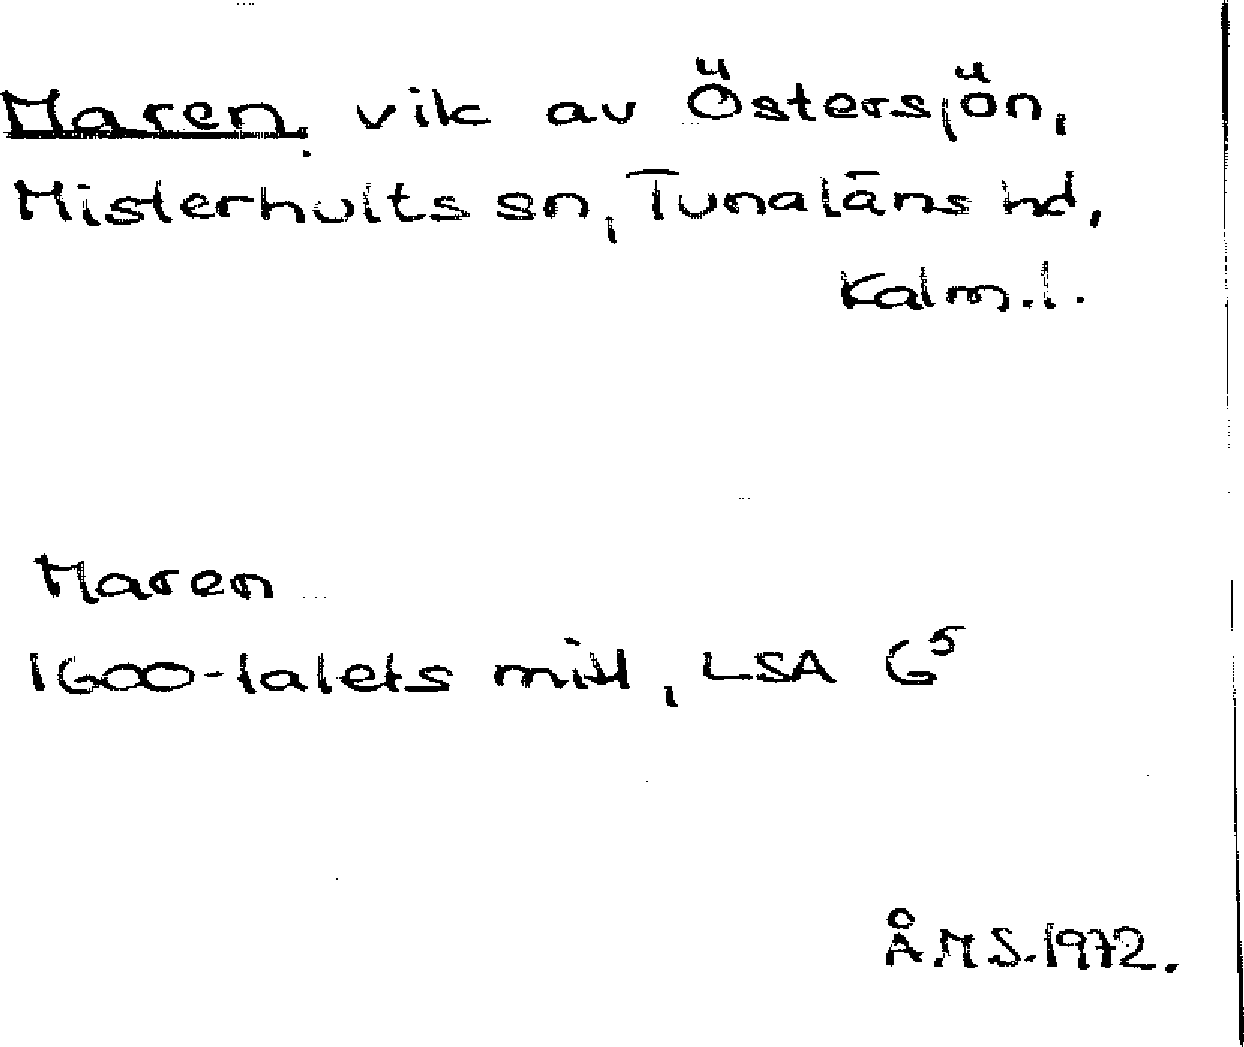 Maren, vik av Östersjön,
Misterhults sn, Tunaläns hd,
Kalm.l.
Maren
1600-talets mitt, LSA G⁵
Å.M.S.1972.